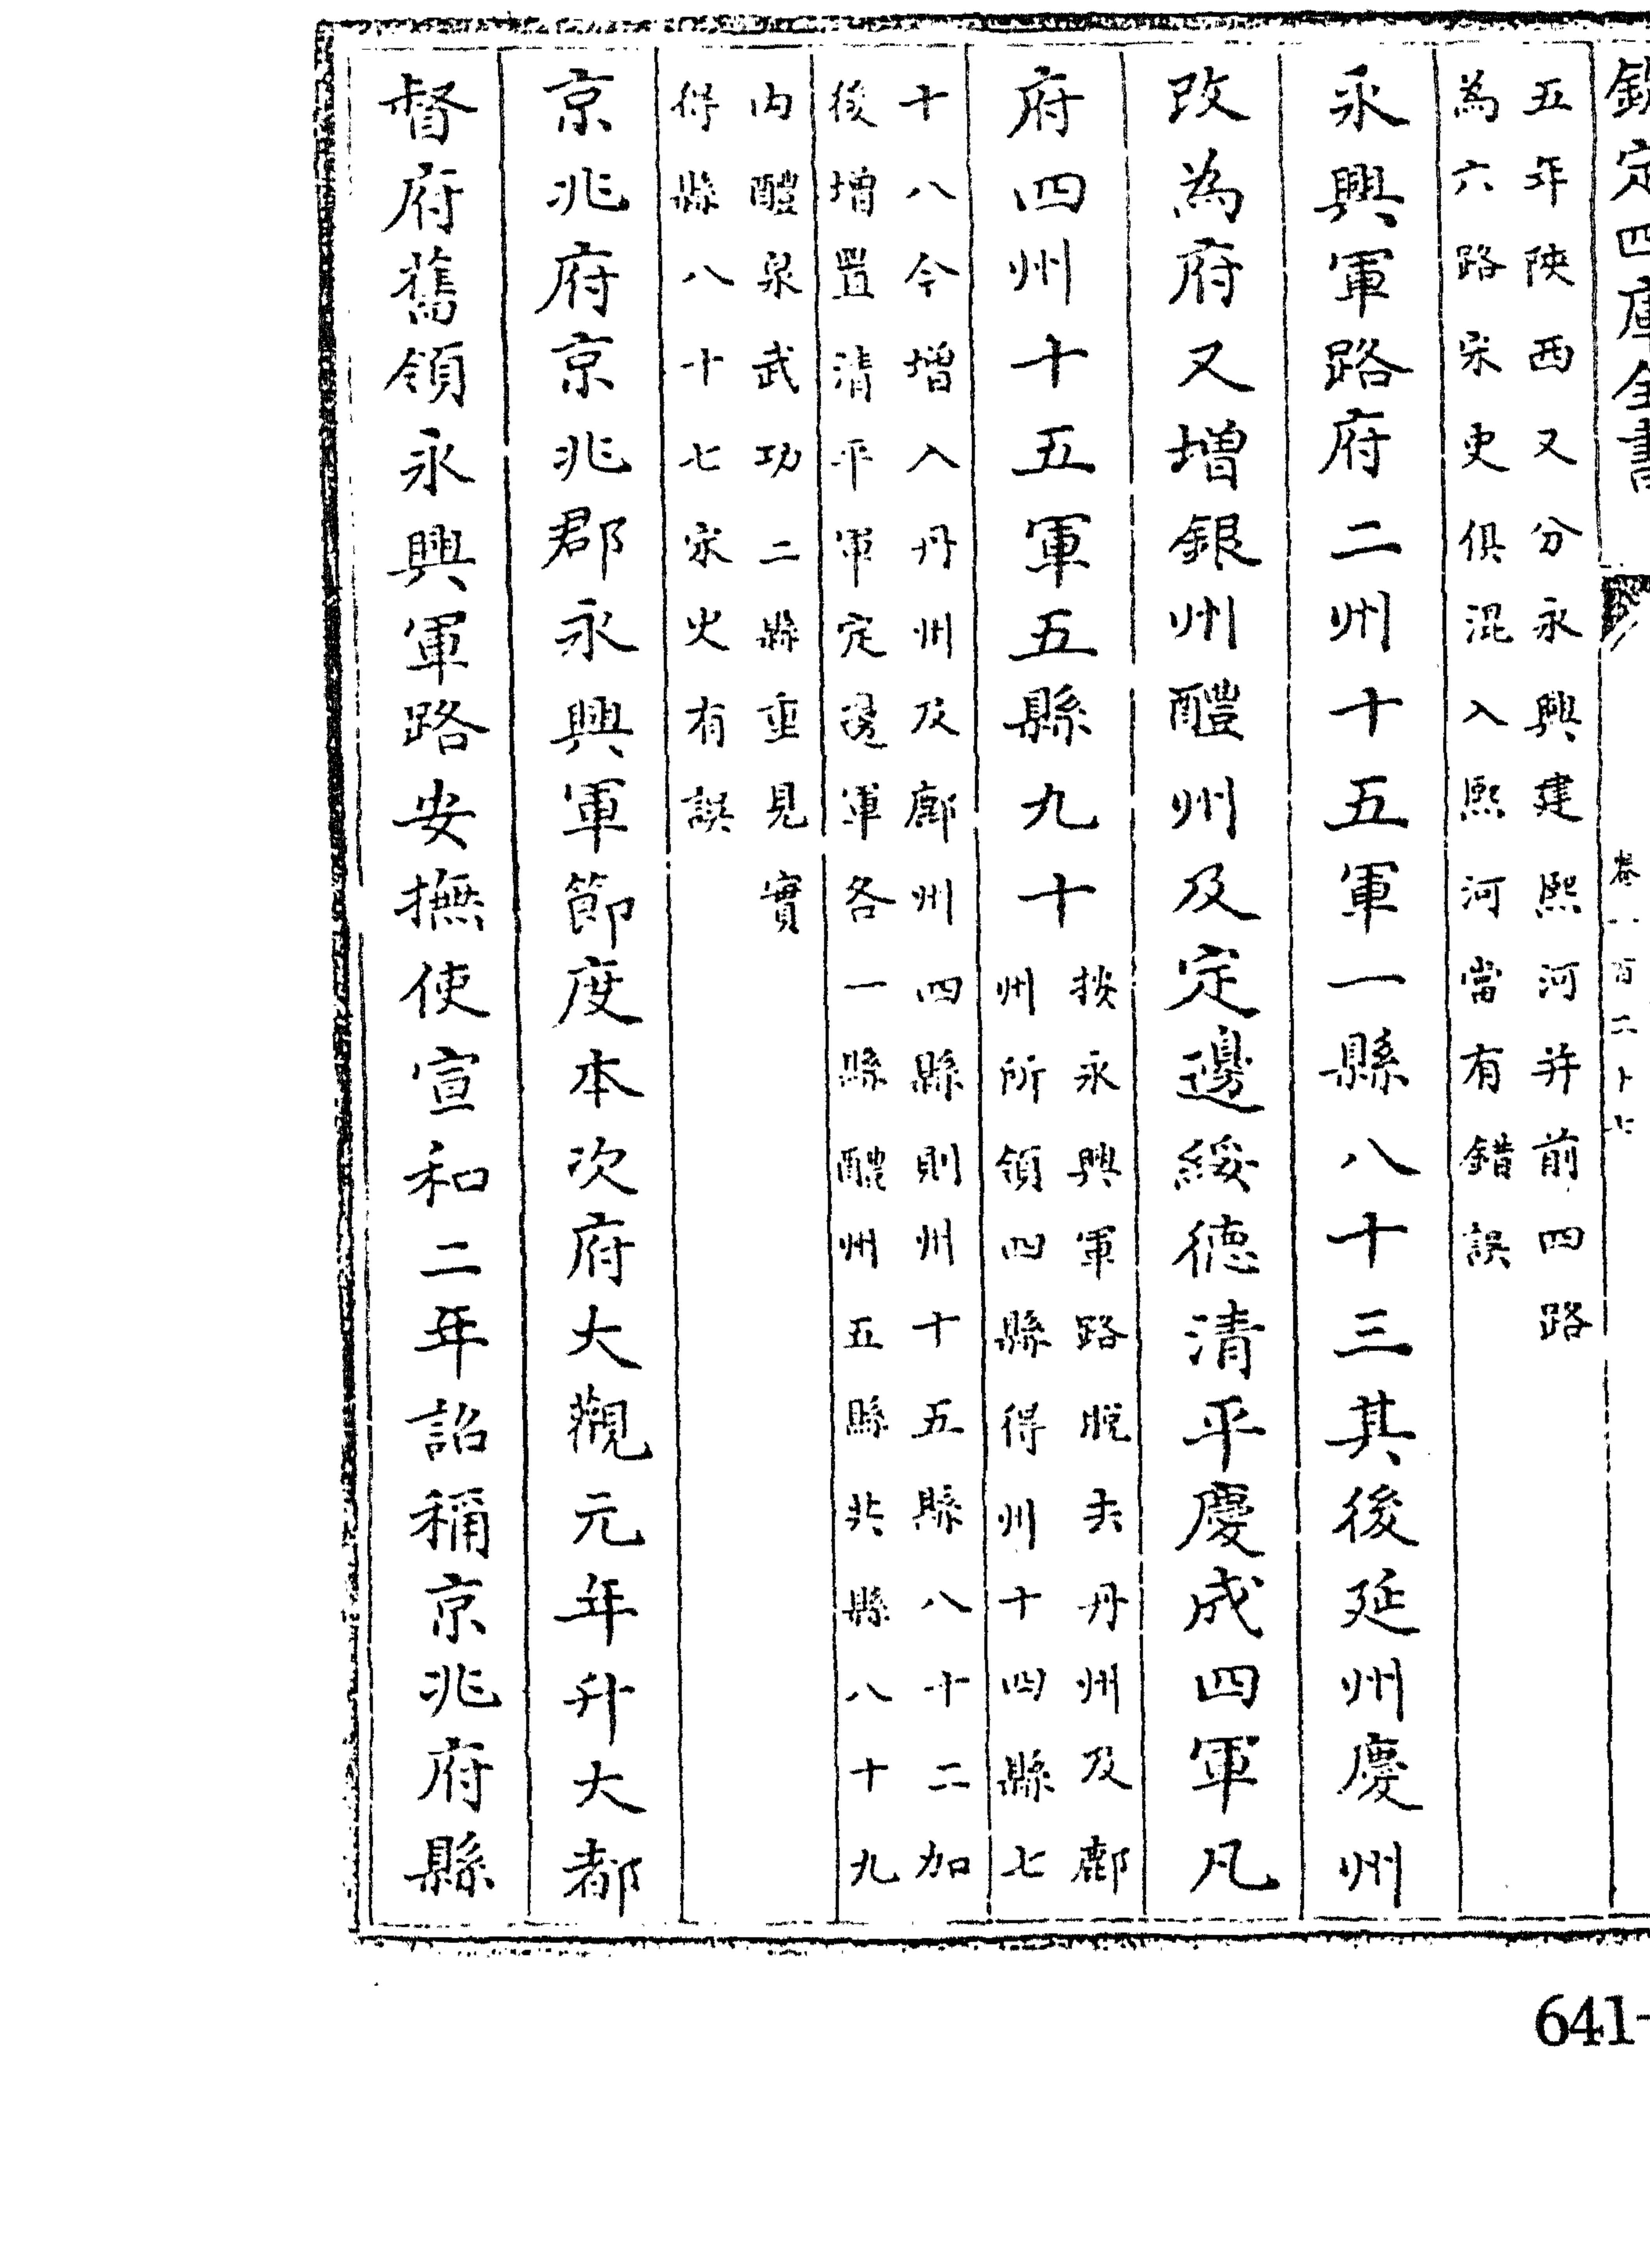 欽定四庫全書
卷一百二十七
五年陝西又分永興建熙河并前四路
為六路宋史俱混入熙河當有錯誤
永興軍路府二州十五軍一縣八十三其後延州慶州
改為府又增銀州醴州及定邊綏德清平慶成四軍凡
府四州十五軍五縣九十
按永興軍路脫去丹州及鄜
州所領四縣得州十四縣七
十八今增入丹州及鄜州四縣則州十五縣八十二加
後增置清平軍定邊軍各一縣醴州五縣共縣八十九
内醴泉武功二縣重見實
得縣八十七宋史有誤
京兆府京兆郡永興軍節度本次府大觀元年升大都
督府舊領永興軍路安撫使宣和二年詔稱京兆府縣
641-